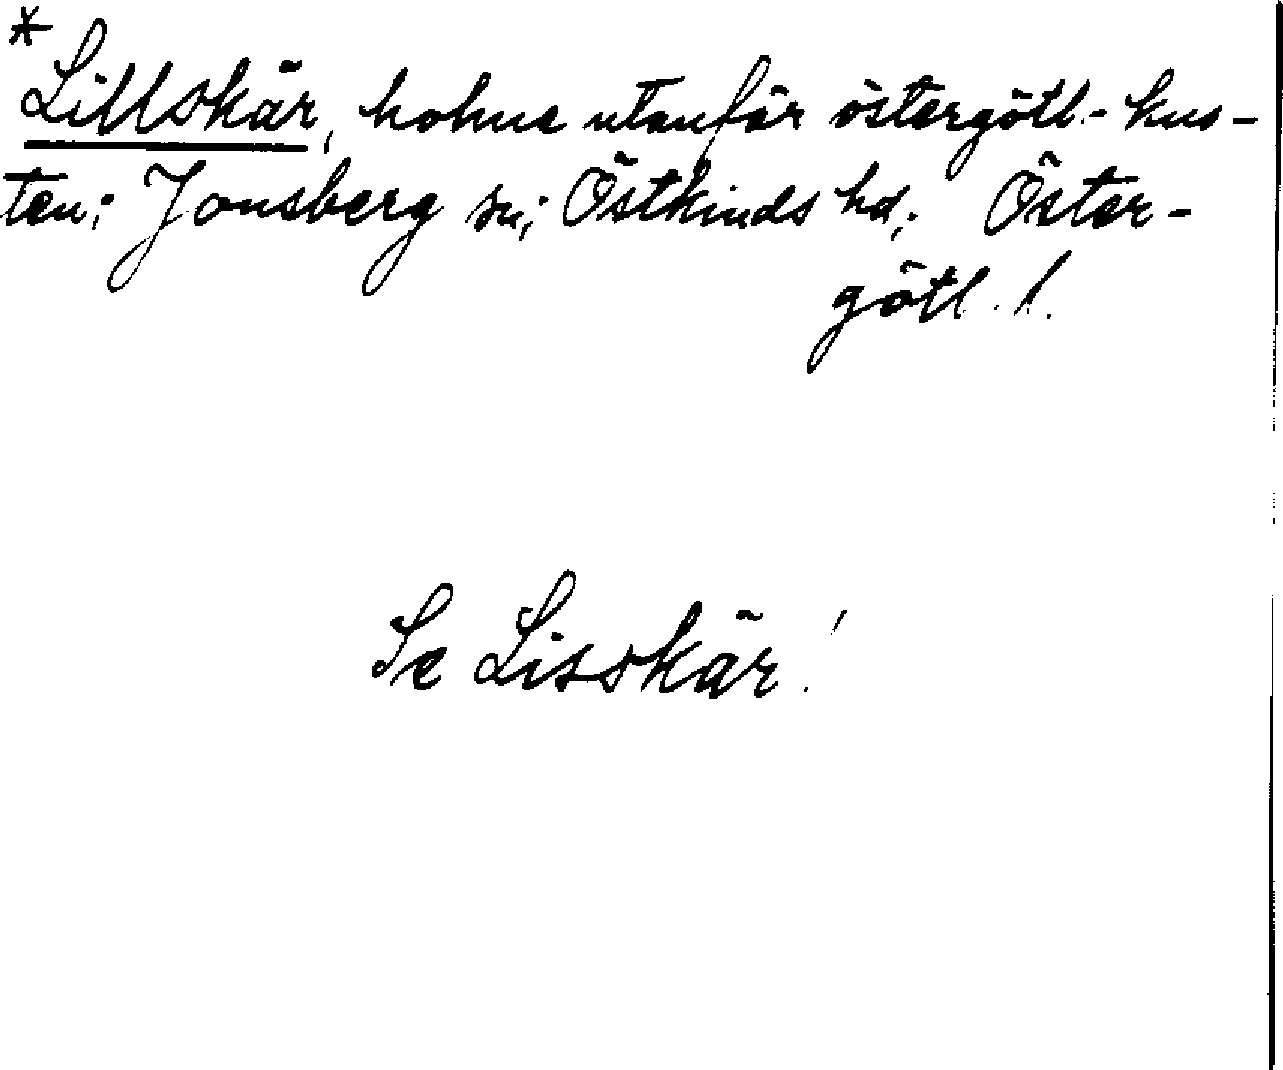 *
Lillskär, holme utanför östergötl.-kus-
ten; Jonsberg sn; Östkinds hd; Öster-
götl. l.
Se Lisskär!